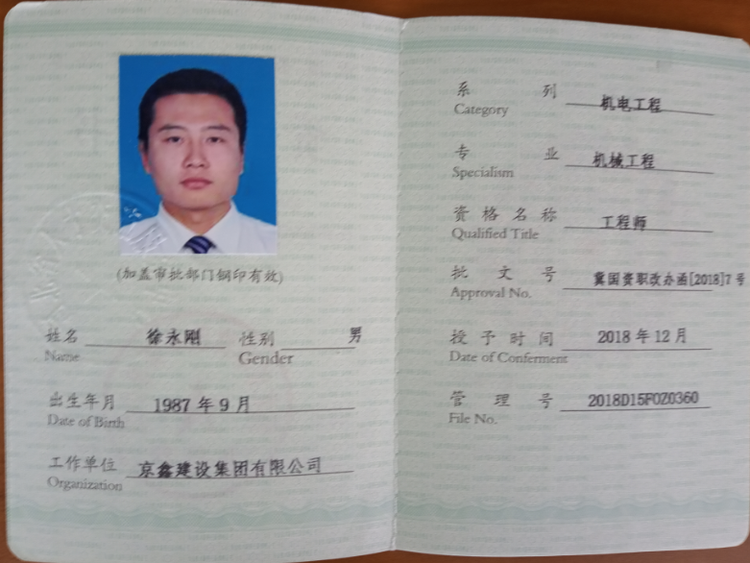 (加盖审批部门钢印有效)
姓名 徐永刚 性别 男
Name Gender
出生年月 1987年9月
Date of Birth
工作单位 京鑫建设集团有限公司
Organization
系列 机电工程
Category
专业 机械工程
Specialism
资格名称 工程师
Qualified Title
批文号 冀国资职改办函[2018]7号
Approval No.
授予时间 2018年12月
Date of Conferment
管理号 2018D15F0Z0360
File No.